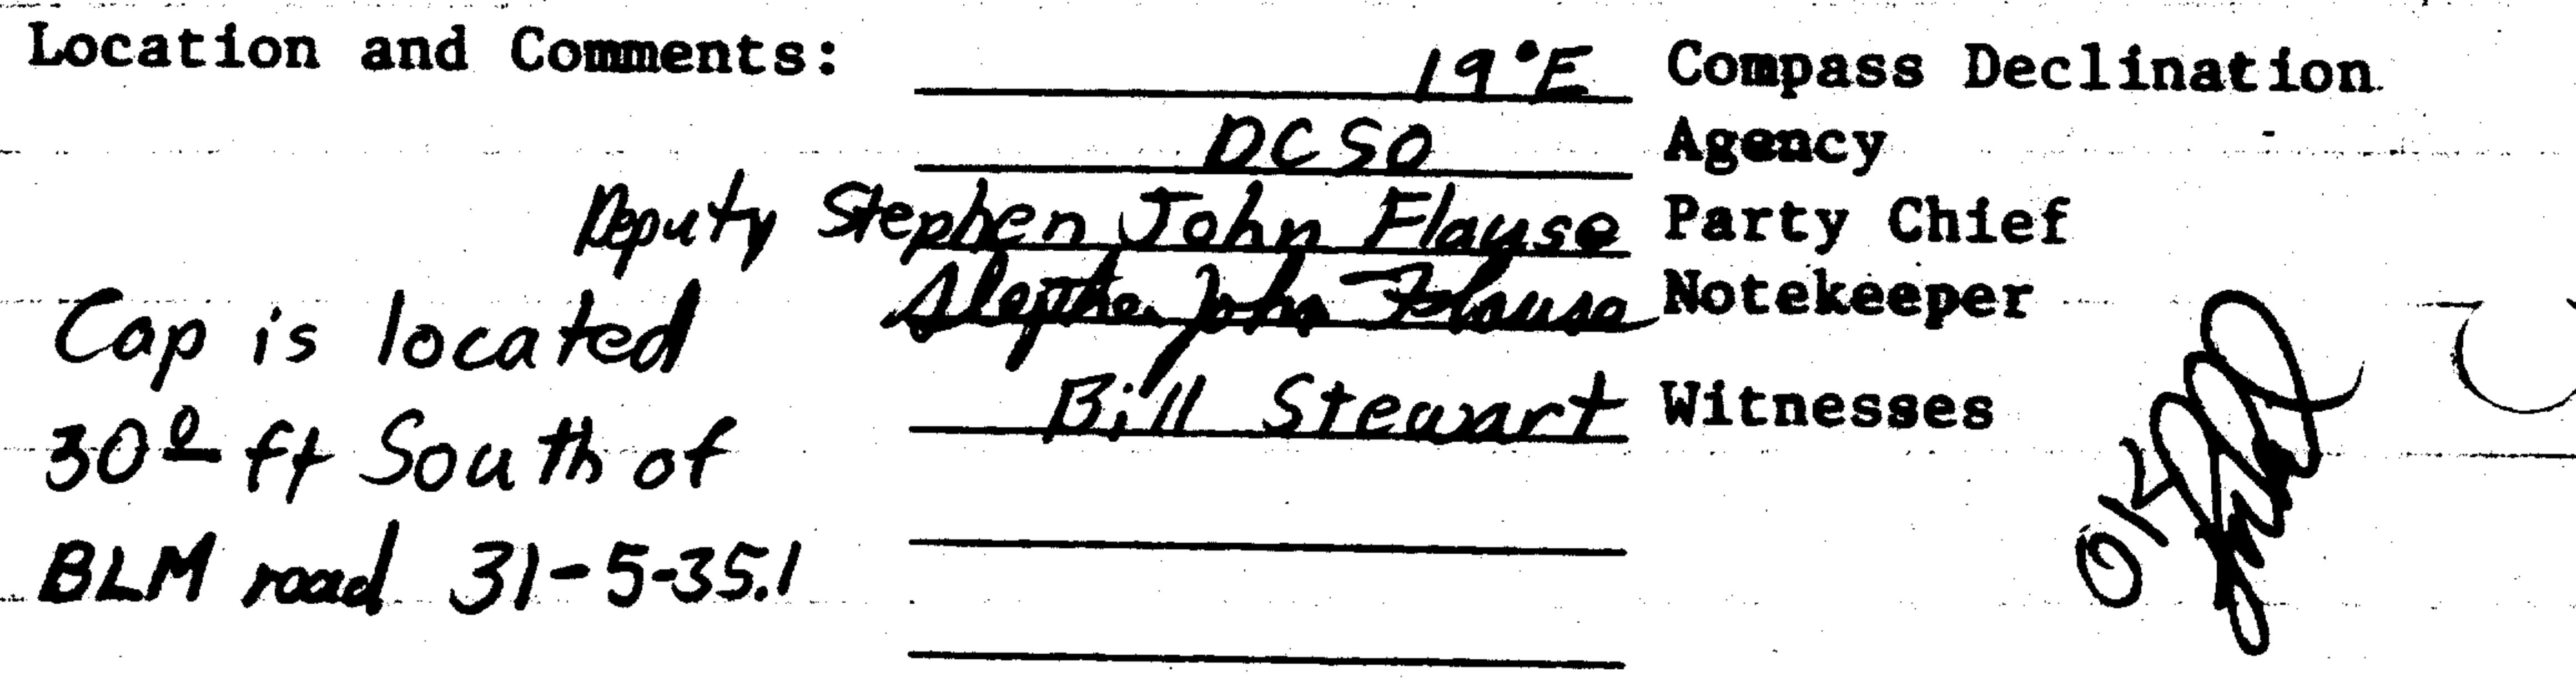 Location and Comments: 19°E Compass Declination
DCSO Agency
Deputy Stephen John Flause Party Chief
Stephen John Flause Notekeeper
Cap is located
Bill Stewart Witnesses
30⁰ ft South of
BLM road 31-5-35.1